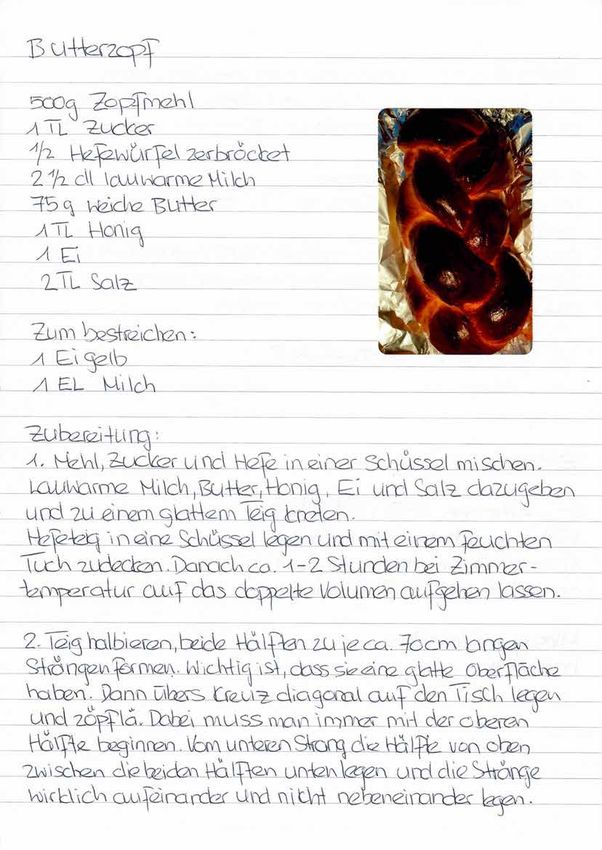 Butterzopf
500g Zopfmehl
1 TL Zucker
1/2 Hefewürfel zerbröcket
2 1/2 dl lauwarme Milch
75g weiche Butter
1 TL Honig
1 Ei
2 TL Salz
Zum bestreichen:
1 Eigelb
1 EL Milch
Zubereitung:
1. Mehl, Zucker und Hefe in einer Schüssel mischen.
Lauwarme Milch, Butter, Honig, Ei und Salz dazugeben
und zu einem glattem Teig kneten.
Hefeteig in eine Schüssel legen und mit einem feuchten
Tuch zudecken. Danach ca. 1-2 Stunden bei Zimmer-
temperatur auf das doppelte Volumen aufgehen lassen.
2. Teig halbieren, beide Hälften zu je ca. 70cm langen
Strängen formen. Wichtig ist, dass sie eine glatte Oberfläche
haben. Dann übers Kreuz diagonal auf den Tisch legen
und zöpflä. Dabei muss man immer mit der oberen
Hälfte beginnen. Vom unteren Strang die Hälfte von oben
zwischen die beiden Hälften unten legen und die Stränge
wirklich aufeinander und nicht nebeneinander legen.